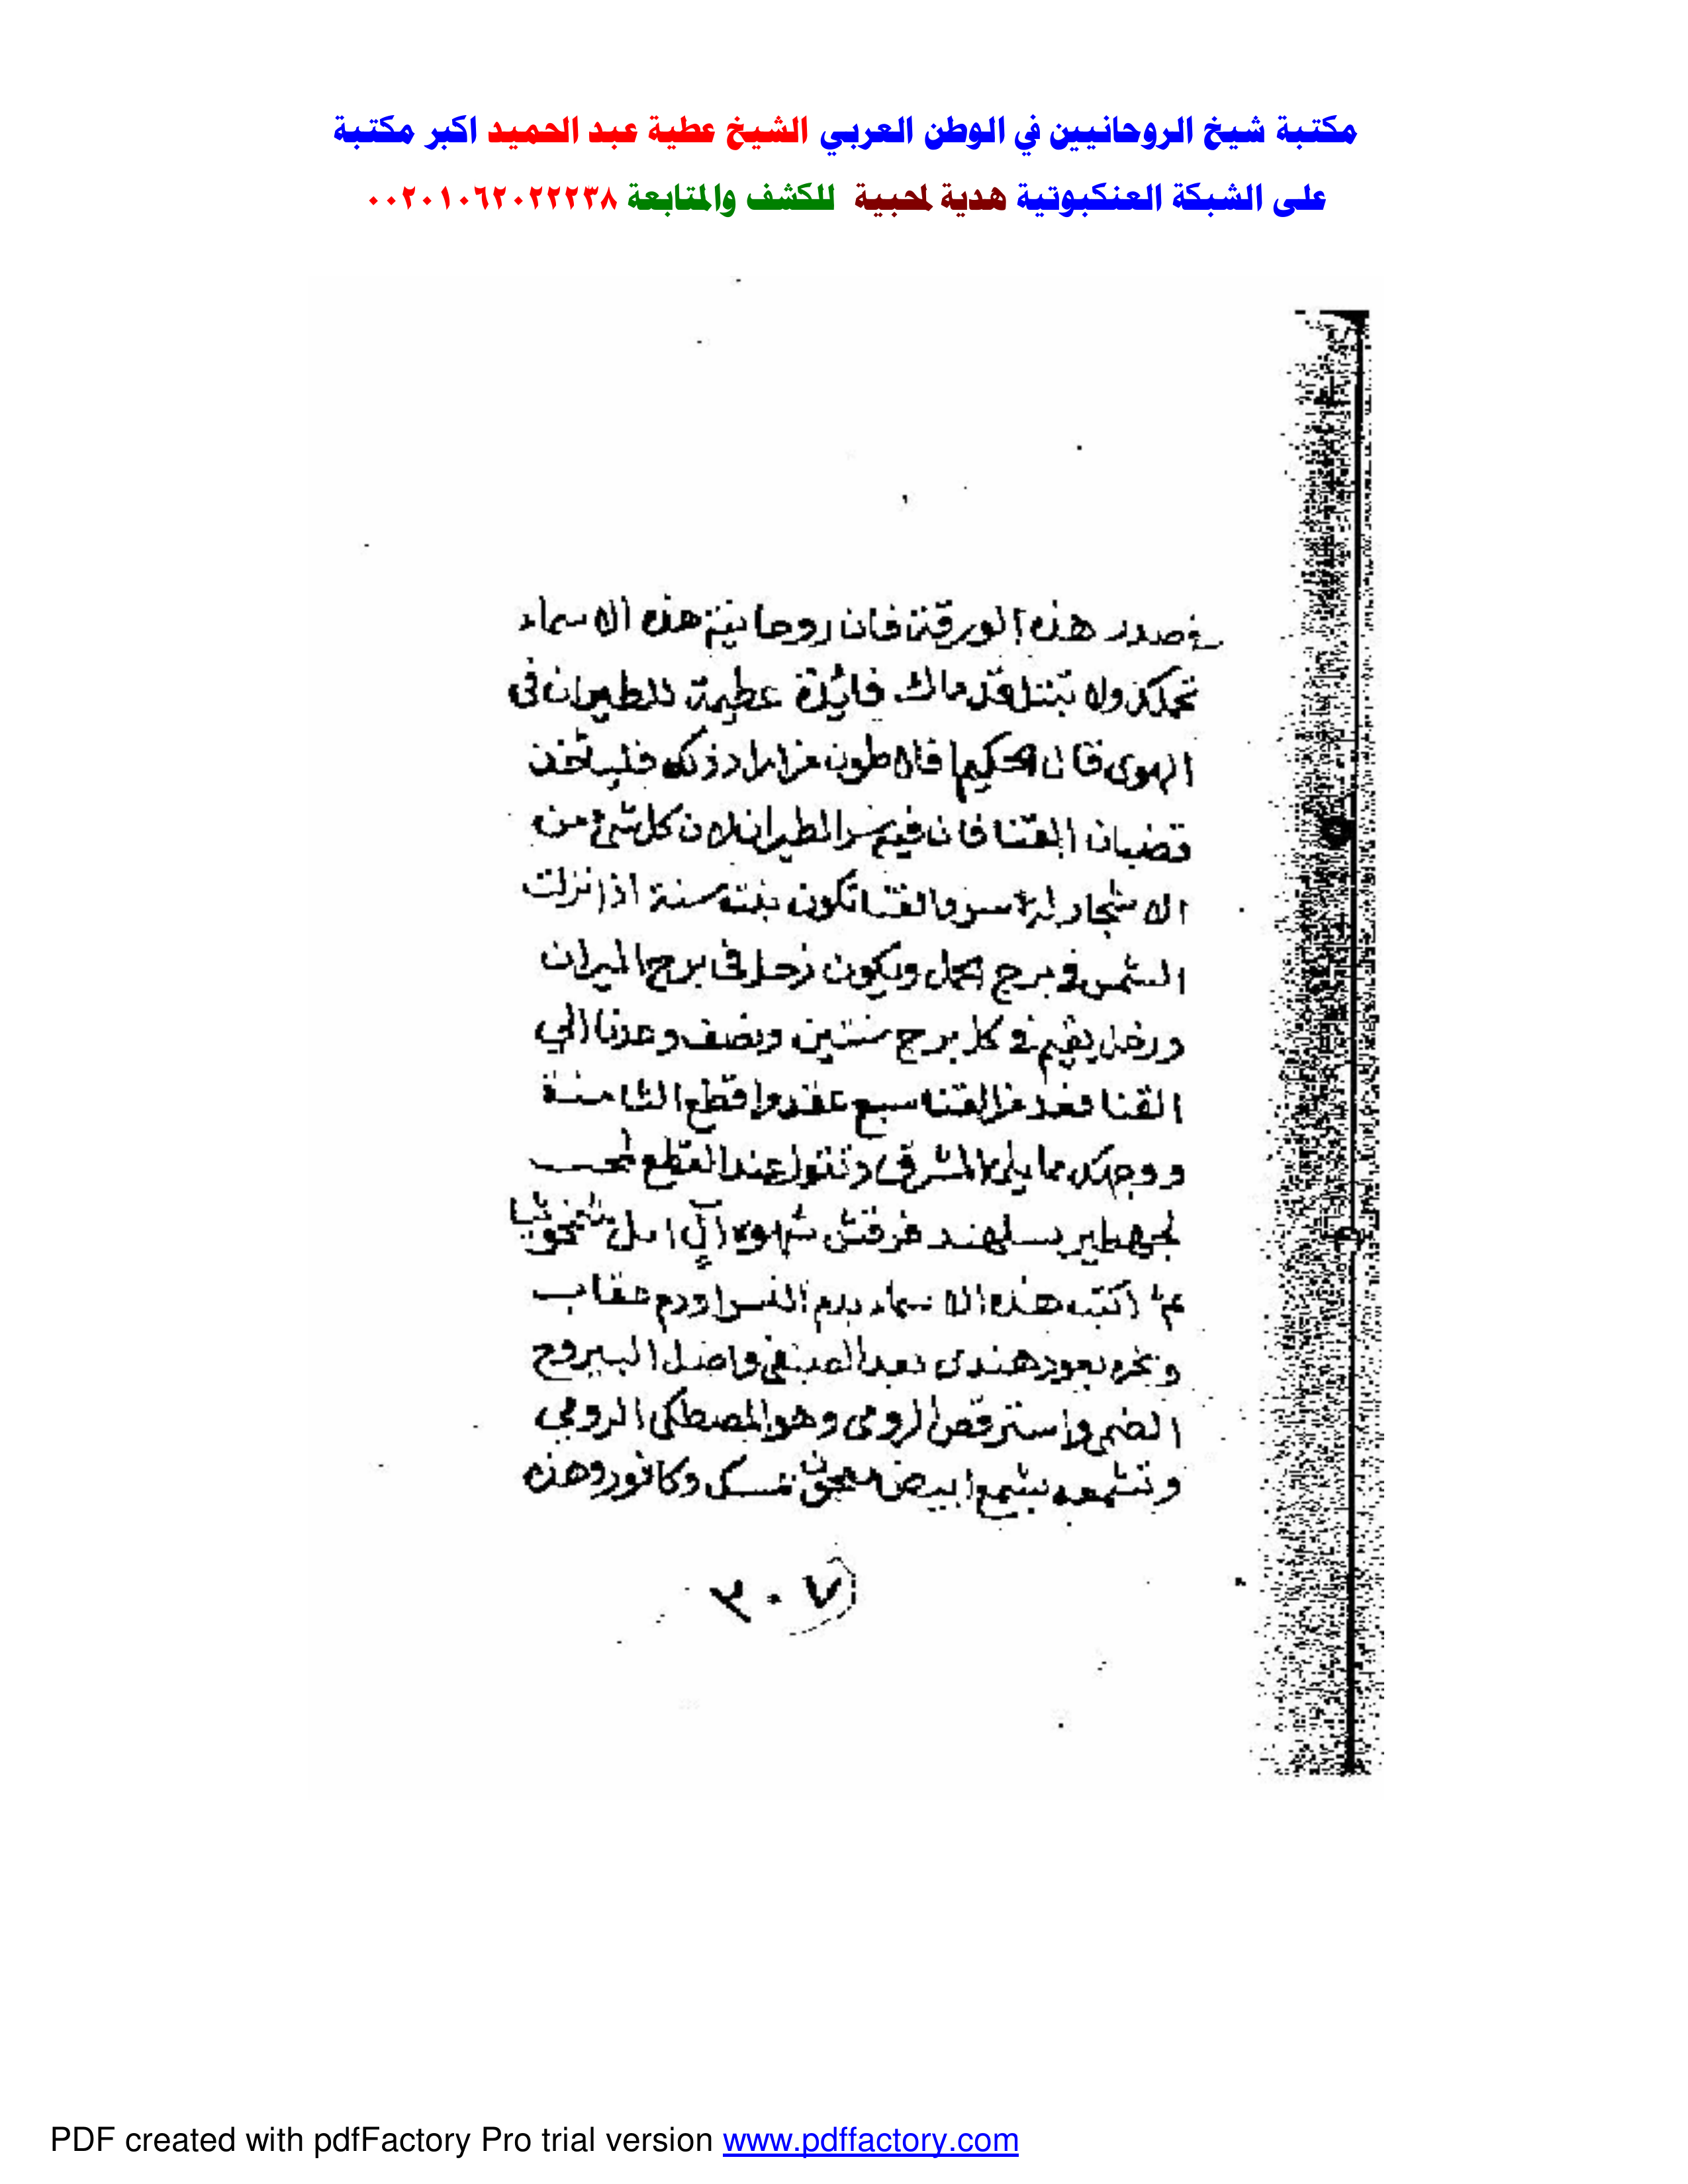 مكتبة شيخ الروحانيين في الوطن العربي الشيخ عطية عبد الحميد اكبر مكتبة
على الشبكة العنكبوتية هدية لمحبية للكشف والمتابعة ٠٠٢٠١٠٦٢٠٢٢٢٣٨
صدر هذه الورقة فان روحانية هذه الاسماء
تحملك ولا فائدة عظيمة للطيران فى
الهوى قال الحكيم افلاطون من اراد ذلك فلياخذ
قضبان القنا فان فيه سر الطيران لان كل شئ من
الاشجار له سر والقنا تكون بنت سنة اذا نزلت
الشمس في برج الحمل ويكون زحل فى برج الميزان
وزحل يقيم في كل برج سنتين ونصف وعدنا الي
القنا فخذ من القنا سبع عقد واقطع الثامنة
ووجهك مما يلي المشرق وتقول عند القطع
ثم اكتب هذه الاسماء بدم النسر او دم عقاب
وبخره بعود هندى واصل اليبروح
الصنم الرومى وهو المصطكى الرومي
وتشمعه بشمع ابيض معجون بمسك وكافور وهذه
٣٠٧
PDF created with pdfFactory Pro trial version www.pdffactory.com